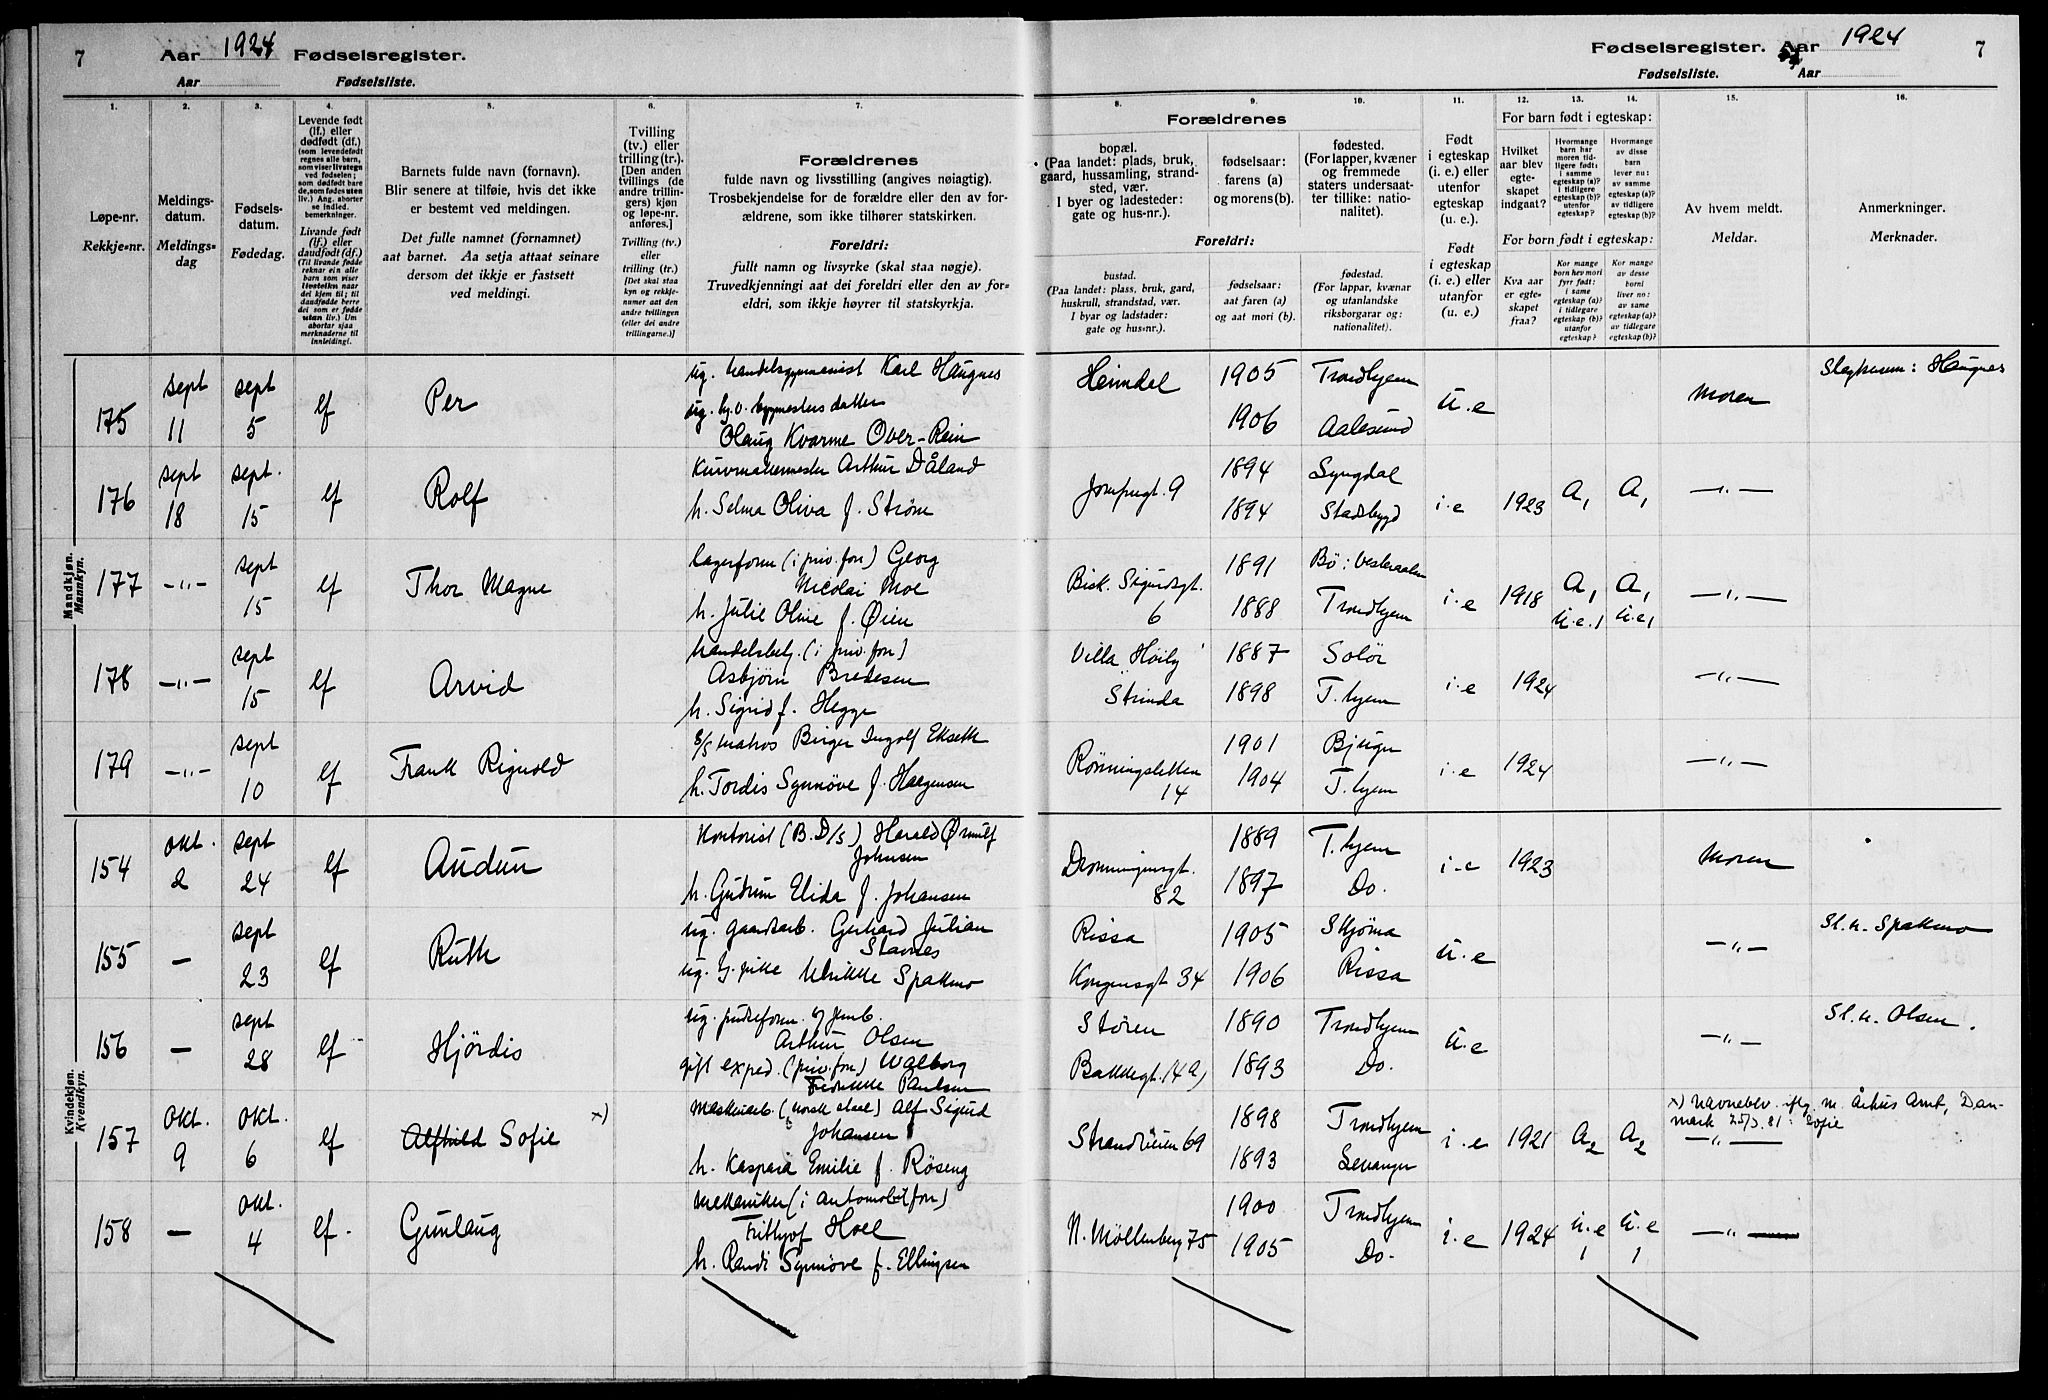 7 Aar 1924 Fødselsregister.
Aar Fødselsliste.
Fødselsregister. Aar 1924 7
Fødselsliste. Aar
1. 2. 3. 4. 5. 6. 7. 8. 9. 10. 11. 12. 13. 14. 15. 16.
Løpe-nr.
Rekkje-nr.
Meldings-
datum.
Meldings-
dag
Fødsels-
datum.
Fødedag.
Levende født
(lf.) eller
dødfødt (df.)
(som levendefødt
regnes alle barn,
som viser livstegn
ved fødselen;
som dødfødt bare
de, som fødes uten
liv.) Ang. aborter
se indled.
bemerkninger.
Livande født
(lf.) eller
daudfødt (df.)
(Til livande fødde
reknar ein alle
barn som viser
livsteikn naar
dei kjem til; til
daudfødde berre
dei som er fødde
utan liv.) Um
abortar sjaa
merknaderne til
innleiding).
Barnets fulde navn (fornavn).
Blir senere at tilføie, hvis det ikke
er bestemt ved meldingen.
Det fulle namnet (fornamnet)
aat barnet. Aa setja attaat seinare
dersom det ikkje er fastsett
ved meldingi.
Tvilling
(tv.) eller
trilling (tr.).
[Den anden
tvillings (de
andre trillin-
gers) kjøn
og løpe-nr.
anføres.]
Tvilling (tv.)
eller
trilling (tr.)
[Det skal staa
kyn og rekkje-
numer aat den
andre tvillingen
(eller dei andre
trillingarne.)]
Forældrenes
fulde navn og livsstilling (angives nøiagtig).
Trosbekjendelse for de forældre eller den av for-
ældrene, som ikke tilhører statskirken.
Foreldri:
fullt namn og livsyrke (skal staa nøgje).
Truvedkjenningi aat dei foreldri eller den av for-
eldri, som ikkje høyrer til statskyrkja.
Forældrenes
bopæl.
(Paa landet: plads, bruk,
gaard, hussamling, strand-
sted, vær.
I byer og ladesteder:
gate og hus-nr.).
fødselsaar:
farens (a)
og morens (b).
fødested.
(For lapper, kvæner
og fremmede
staters undersaat-
ter tillike: natio-
nalitet).
Foreldri:
bustad.
(Paa landet: plass, bruk, gard,
huskrull, strandstad, vær.
I byar og ladstader:
gate og hus-nr.).
fødselsaar:
aat faren (a)
og aat mori (b).
fødestad.
(For lappar, kvænar
og utanlandske
riksborgarar og:
nationalitet).
Født
i egteskap
(i. e.) eller
utenfor
egteskap
(u. e.).
Født
i egteskap
(i. e.) eller
utanfor
(u. e.)
For barn født i egteskap:
Hvilket
aar blev
egte-
skapet
indgaat?
Hvormange
barn har
moren tid-
ligere født:
i samme
egteskap (a)?
i tidligere
egteskap (b)?
utenfor
egteskap?
Hvormange
av disse
barn
lever nu:
av samme
egteskap (a)?
av tidligere
egteskap (b)?
For born født i egteskap:
Kva aar
er egte-
skapet
fraa?
Kor mange
born hev mori
fyrr født:
i same
egteskap (a)?
i tidlegare
egteskap (b)?
utanfor
egteskap?
Kor mange
av desse
borni
liver no:
av same
egteskap (a)?
av tidlegare
egteskap (b)?
Av hvem meldt.
Meldar.
Anmerkninger.
Merknader.
Mandkjøn.
Mannkyn.
175 sept 11 sept 5 lf Per ug. handelsgymnasiast Karl Haugnes
Olaug Kvarme Over-Rein
Heimdal 1905 Trondhjem
1906 Aalesund u.e Moren Slegtsnavn: Haugnes
176 sept 18 sept. 15 lf Rolf Kurvmakermester Arthur Dåland
h. Selma Oliva f. Strøm
Jomfrugt. 9 1894 Lyngdal
1894 Stadsbygd i.e 1923 A, A, —"—
177 —"— sept 15 lf Thor Magne lagerform (i priv. forr) Georg
Nicolai Moe
h. Julie Oline f. Øien
Bisk. Sigurdsgt. 6 1891 Bø i Vesteraalen
1888 Trondhjem i.e 1918 A, u.e. 1 A, u.e, —"—
178 —"— sept 15 lf Arvid handelsbetj. (i priv. forr)
Asbjørn Bredesen
h. Sigrid f. Hegge
Villa Høily Strinda 1887 Solør
1898 T. hjem i.e 1924 —"—
179 —"— sept 10 lf Frank Rignold s/s matros Birger Ingolf Ekseth
h. Tordis Synnøve f. Haagensen
Rønningsletten 14 1901 Bjugn
1904 T. hjem i.e 1924 —"—
Kvindekjøn.
Kvendkyn.
154 okt. 2 sept 24 lf Audun Kontorist (B. D/s) Harald Ørnulf
Johnsen
h. Gudrun Elida f. Johansen
Dronningensgt. 82 1889 T. hjem
1897 Do. i.e 1923 Moren
155 — sept 23 lf Ruth ug. gaardsarb. Gerhard Julian
Stavnes
ug. tj. pike Ulrikke Spakmo
Rissa 1905 Skjørna
Kongensgt 34 1906 Rissa u.e —"— Sl.n. Spakmo
156 — sept 28 lf Hjørdis ug.
Arthur Olsen
gift exped. (priv. forr) Walborg
Fredrikke Paulsen
Støren 1890 Trondhjem
Bakkegt. 14 a) 1893 Do. u.e —"— Sl.n. Olsen.
157 okt. 9 okt. 6 lf Alfhild Sofie x) Maskinarb. (norsk staal) Alf Sigurd
Johansen
h. Kaspara Emilie f. Røseng
Strandveien 69 1898 Trondhjem
1893 Levanger i.e 1921 A2 A2 —"— x) Navnebev. iflg. m. Århus Amt, Dan-
mark 25/3.81: Sofie
158 — okt. 4 lf. Gunlaug Mekaniker (i automobilforr)
Frithjof Hoel
h. Randi Synnøve f. Ellingsen
N. Møllenberg 75 1900 Trondhjem
1905 Do. i.e 1924 u.e 1 u.e 1 —"—